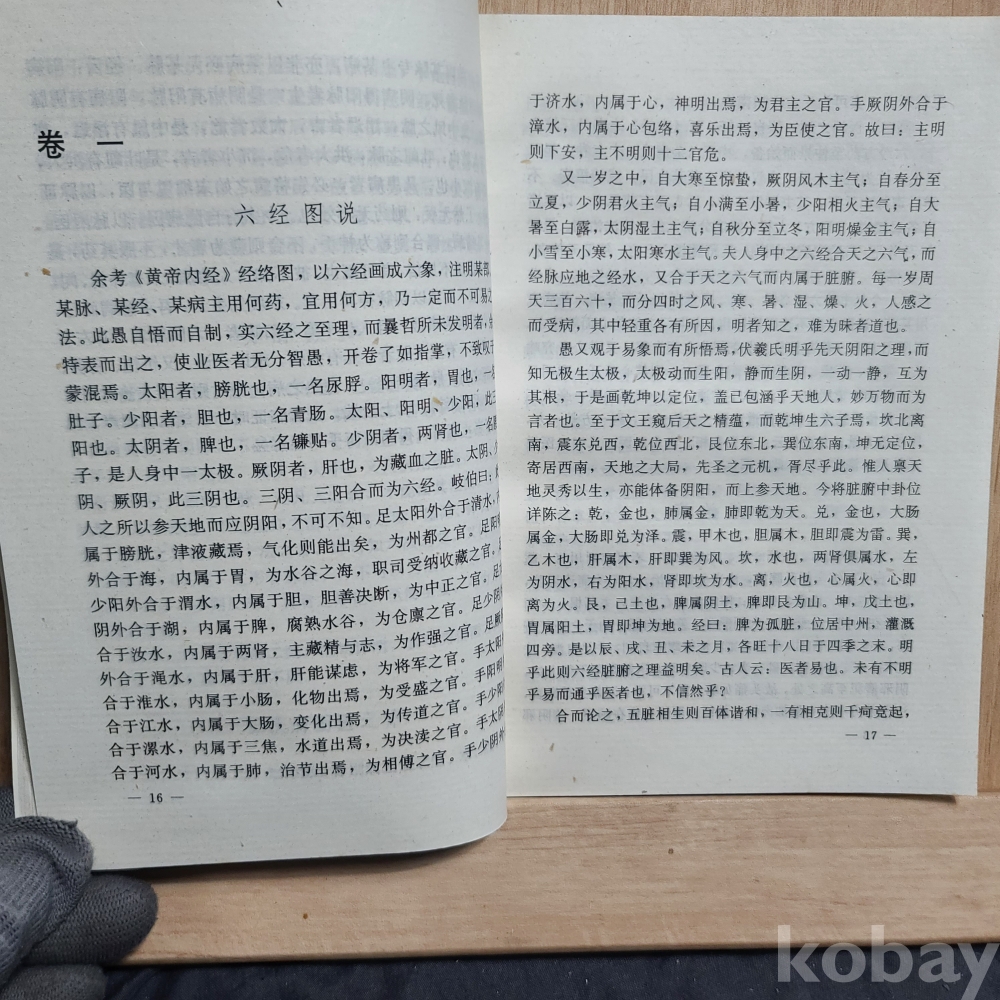 卷 一
六经图说
余考《黄帝内经》经络图，以六经画成六象，注明某部
某脉、某经、某病主用何药，宜用何方，乃一定而不可易之
法。此愚自悟而自制，实六经之至理，而曩哲所未发明者，
特表而出之，使业医者无分智愚，开卷了如指掌，不致叹于
蒙混焉。太阳者，膀胱也，一名尿脬。阳明者，胃也，一
肚子。少阳者，胆也，一名青肠。太阳、阳明、少阳，此三
阳也。太阴者，脾也，一名镰贴。少阴者，两肾也，一名
子，是人身中一太极。厥阴者，肝也，为藏血之脏。太阴、少
阴、厥阴，此三阴也。三阴、三阳合而为六经。岐伯曰：
人之所以参天地而应阴阳，不可不知。足太阳外合于清水，
属于膀胱，津液藏焉，气化则能出矣，为州都之官。足阳
外合于海，内属于胃，为水谷之海，职司受纳收藏之官。足
少阳外合于渭水，内属于胆，胆善决断，为中正之官。足
阴外合于湖，内属于脾，腐熟水谷，为仓廪之官。足少阴
合于汝水，内属于两肾，主藏精与志，为作强之官。足厥
外合于渑水，内属于肝，肝能谋虑，为将军之官。手太阳
合于淮水，内属于小肠，化物出焉，为受盛之官。手阳明
合于江水，内属于大肠，变化出焉，为传道之官。手少阳
合于漯水，内属于三焦，水道出焉，为决渎之官。手太阴
合于河水，内属于肺，治节出焉，为相傅之官。手少阴外
— 16 —
于济水，内属于心，神明出焉，为君主之官。手厥阴外合于
漳水，内属于心包络，喜乐出焉，为臣使之官。故曰：主明
则下安，主不明则十二官危。
又一岁之中，自大寒至惊蛰，厥阴风木主气；自春分至
立夏，少阴君火主气；自小满至小暑，少阳相火主气；自大
暑至白露，太阴湿土主气；自秋分至立冬，阳明燥金主气；
自小雪至小寒，太阳寒水主气。夫人身中之六经合天之六气，而
经脉应地之经水，又合于天之六气而内属于脏腑。每一岁周
天三百六十，而分四时之风、寒、暑、湿、燥、火，人感之
而受病，其中轻重各有所因，明者知之，难为昧者道也。
愚又观于易象而有所悟焉，伏羲氏明乎先天阴阳之理，而
知无极生太极，太极动而生阳，静而生阴，一动一静，互为
其根，于是画乾坤以定位，盖已包涵乎天地人，妙万物而为
言者也。至于文王窥后天之精蕴，而乾坤生六子焉，坎北离
南，震东兑西，乾位西北，艮位东北，巽位东南，坤无定位，
寄居西南，天地之大局，先圣之元机，胥尽乎此。惟人禀天
地灵秀以生，亦能体备阴阳，而上参天地。今将脏腑中卦位
详陈之：乾，金也，肺属金，肺即乾为天。兑，金也，大肠
属金，大肠即兑为泽。震，甲木也，胆属木，胆即震为雷。巽，
乙木也，肝属木，肝即巽为风。坎，水也，两肾俱属水，左
为阴水，右为阳水，肾即坎为水。离，火也，心属火，心即
离为火。艮，己土也，脾属阴土，脾即艮为山。坤，戊土也，
胃属阳土，胃即坤为地。经曰：脾为孤脏，位居中州，灌溉
四旁。是以辰、戌、丑、未之月，各旺十八日于四季之末。明
乎此则六经脏腑之理益明矣。古人云：医者易也。未有不明
乎易而通乎医者也，不信然乎？
合而论之，五脏相生则百体谐和，一有相克则千疴竞起，
— 17 —
kobay